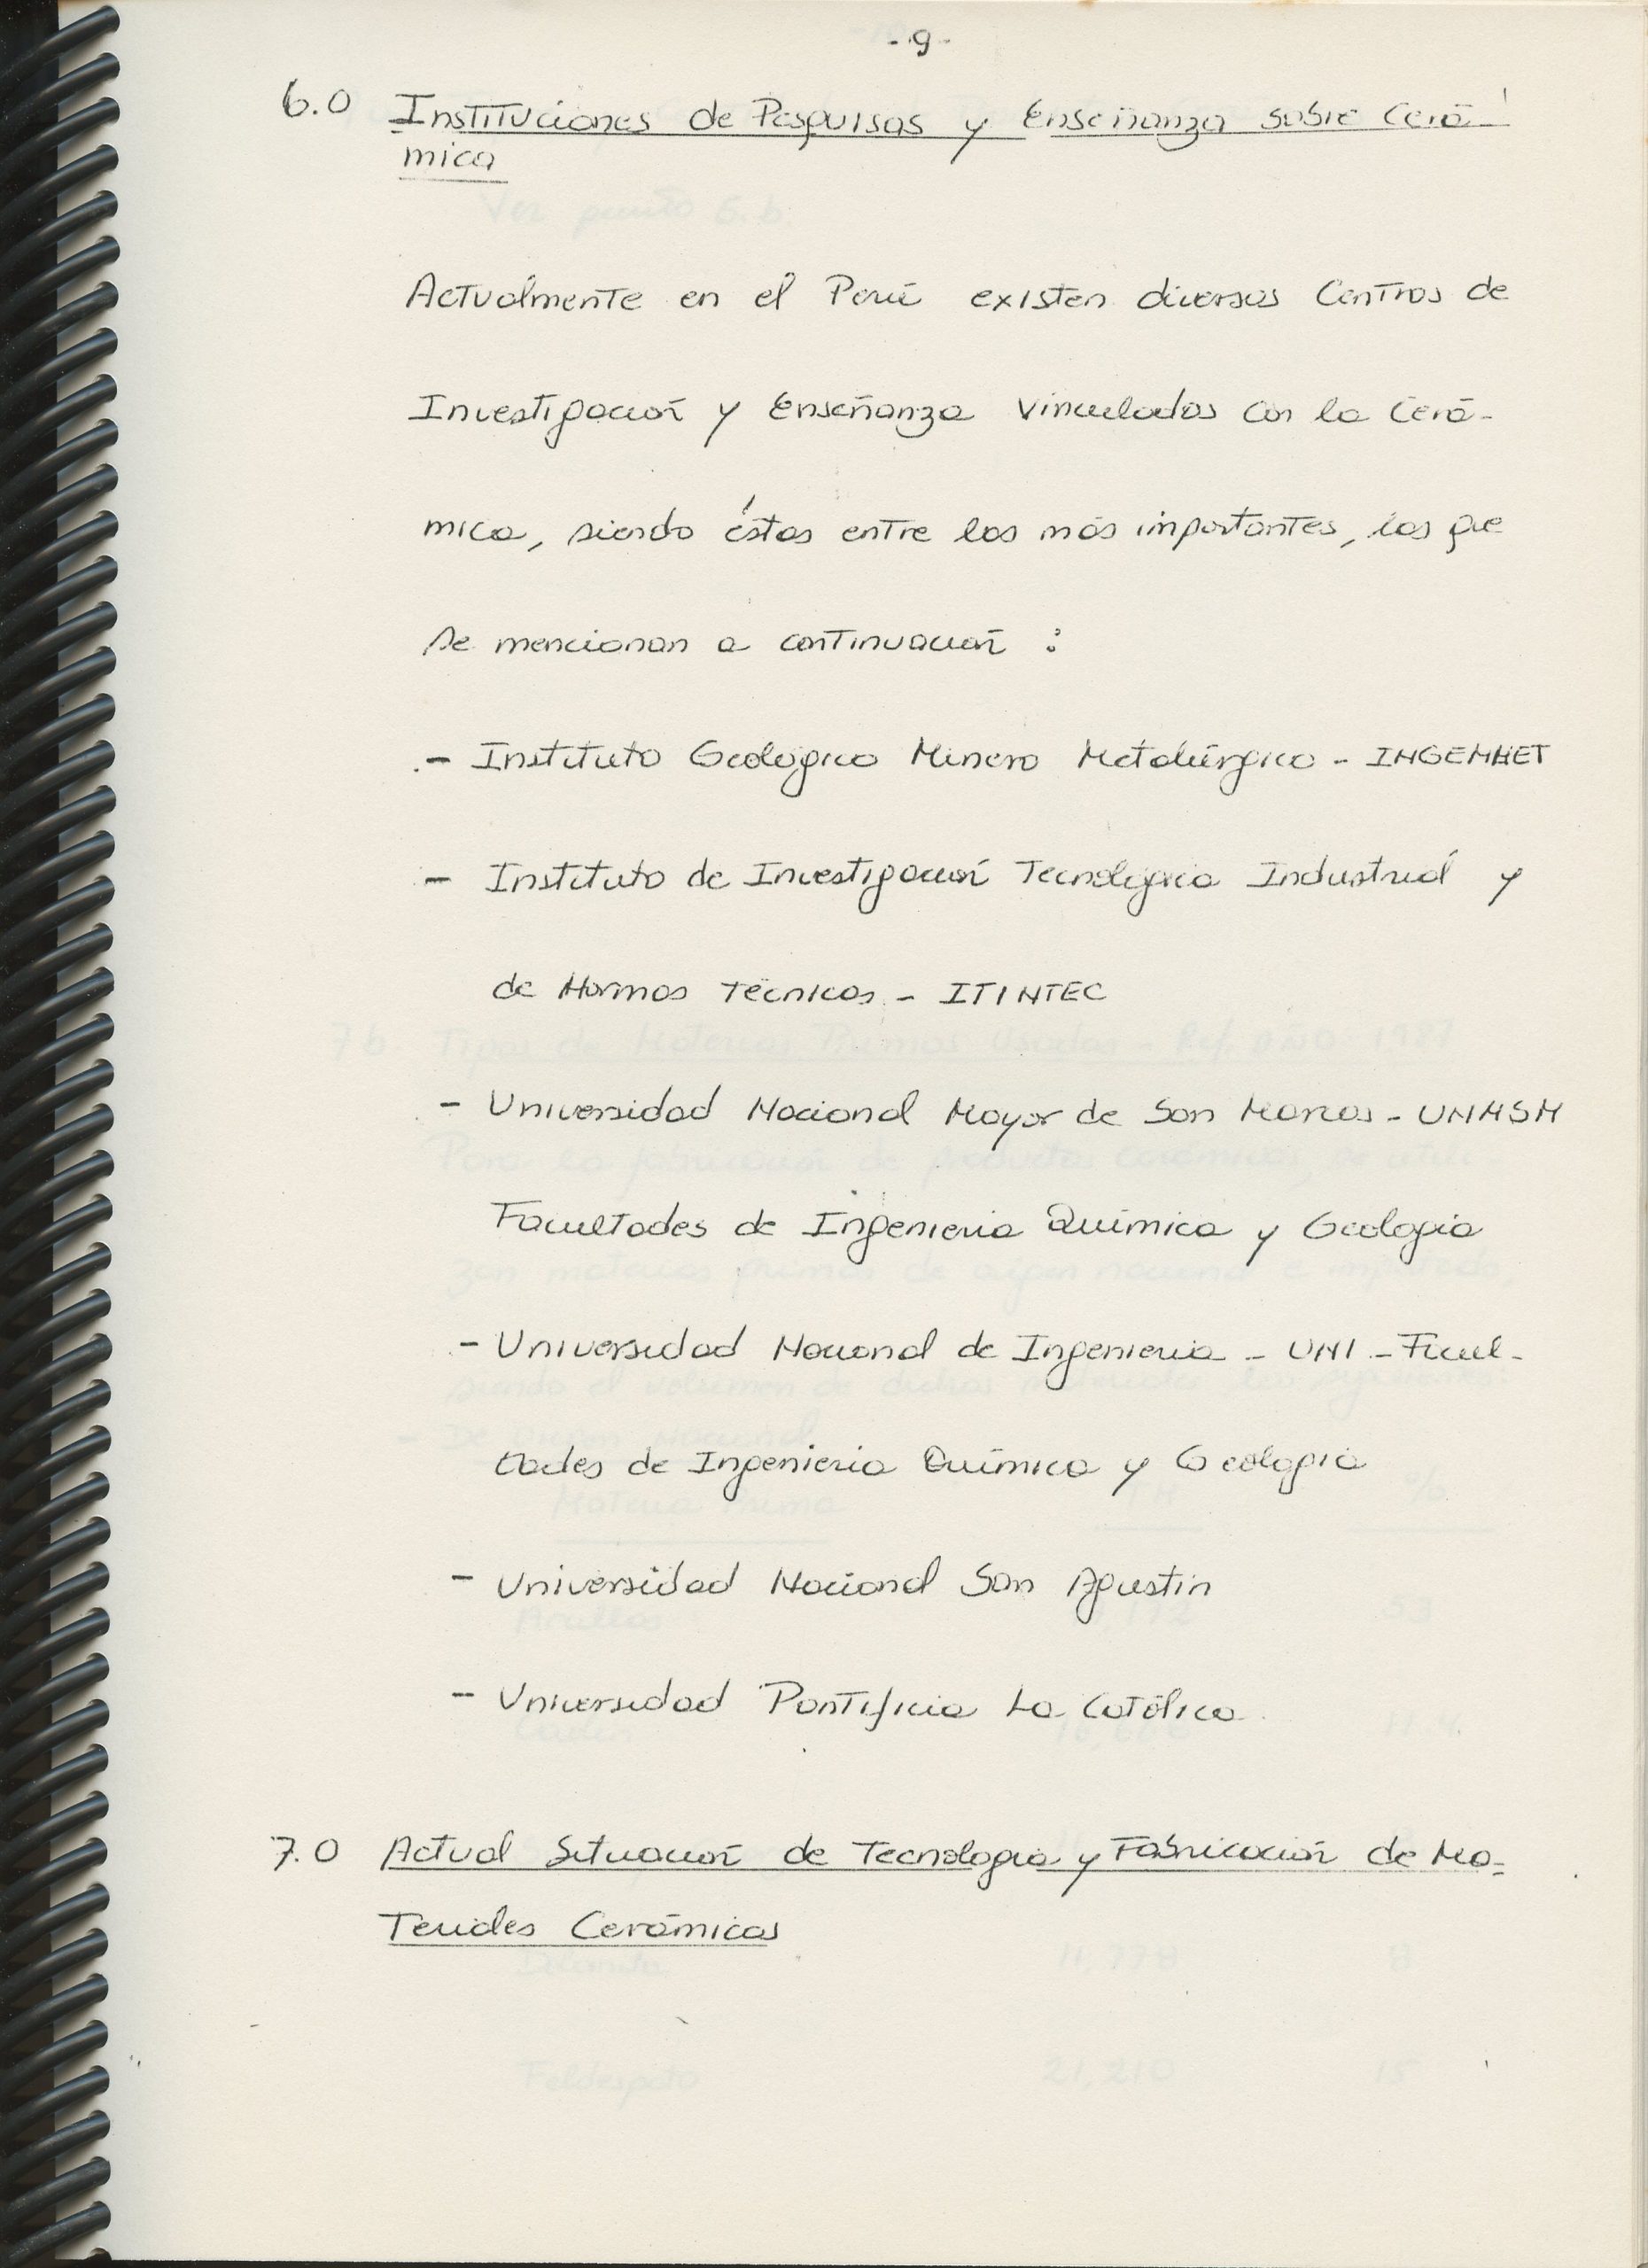 - 9 -
6.0 Instituciones de Pesquisas y Enseñanza sobre Cerá-
mica
Actualmente en el Perú existen diversos Centros de
Investigación y Enseñanza vinculados con la Cerá-
mica, siendo éstos entre los más importantes, los que
se mencionan a continuación :
- Instituto Geológico Minero Metalúrgico - INGEMMET
- Instituto de Investigación Tecnológica Industrial y
de Normas Técnicas - ITINTEC
- Universidad Nacional Mayor de San Marcos - UNMSM
Facultades de Ingenieria Química y Geologia
- Universidad Nacional de Ingenieria - UNI - Facul-
tades de Ingenieria Química y Geologia
- Universidad Nacional San Agustin
- Universidad Pontificia La Católica
7.0 Actual Situación de Tecnologia y Fabricación de Ma-
teriales Cerámicos